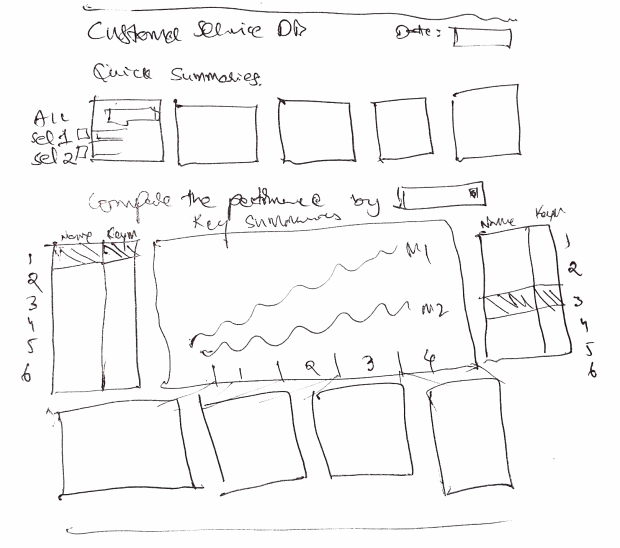 Customer Service DB
Date:
Quick Summaries.
All
Sel 1
Sel 2
Compare the performance by
Key Summaries
Name Keym
1
2
3
4
5
6
M1
M2
1 2 3 4
Name Keym
1
2
3
4
5
6